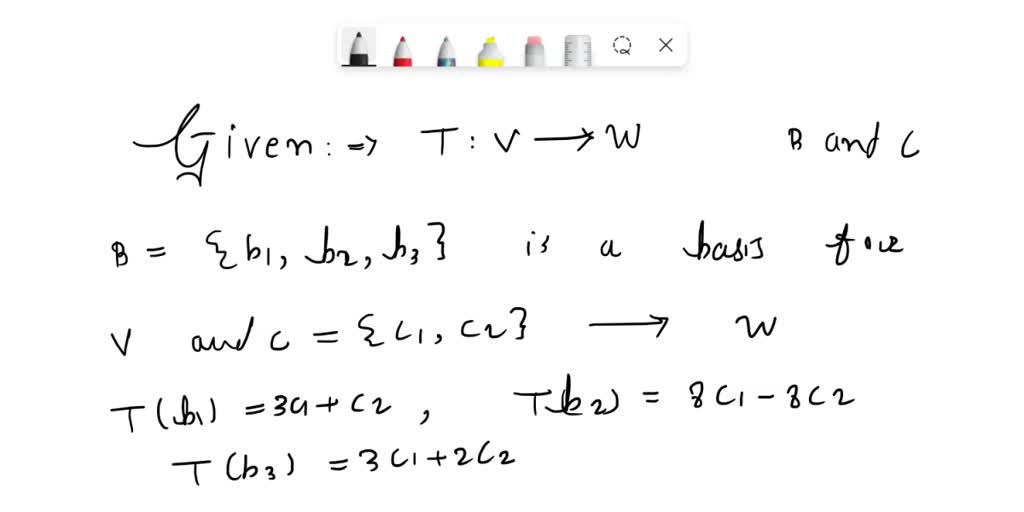 Given: => T : V → W B and C
B = {b1, b2, b3} is a basis for
V and C = {C1, C2} → W
T(b1) = 3C1 + C2, T(b2) = 8C1 - 8C2
T(b3) = 3C1 + 2C2